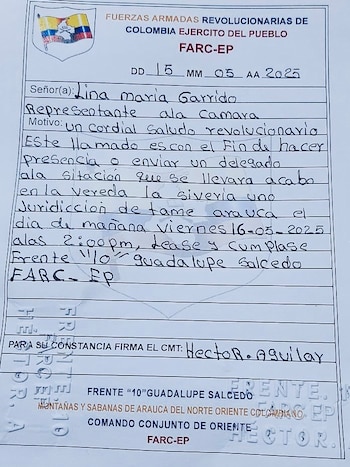 FUERZAS ARMADAS REVOLUCIONARIAS DE
COLOMBIA EJERCITO DEL PUEBLO
FARC-EP
DD 15 MM 05 AA 2025
Señor(a): Lina maria Garrido
Representante ala Camara
Motivo: un cordial saludo revolucionario
Este llamado es con el Fin de hacer
presencia o enviar un delegado
ala sitación que se llevara acabo
en la vereda la siveria uno
Juridiccion de tame arauca el
dia de mañana Viernes 16-05-2025
alas 2:00pm, Lease y Cumplase
Frente "10" guadalupe salcedo
FARC-EP
PARA SU CONSTANCIA FIRMA EL CMT: HectoR. Aguilar
FRENTE "10" GUADALUPE SALCEDO
MONTAÑAS Y SABANAS DE ARAUCA DEL NORTE ORIENTE COLOMBIANO
COMANDO CONJUNTO DE ORIENTE
FARC-EP
FRENTE. 10
FARC EP
HECTOR. A
FRENTE.
FARC EP
HECTOR.